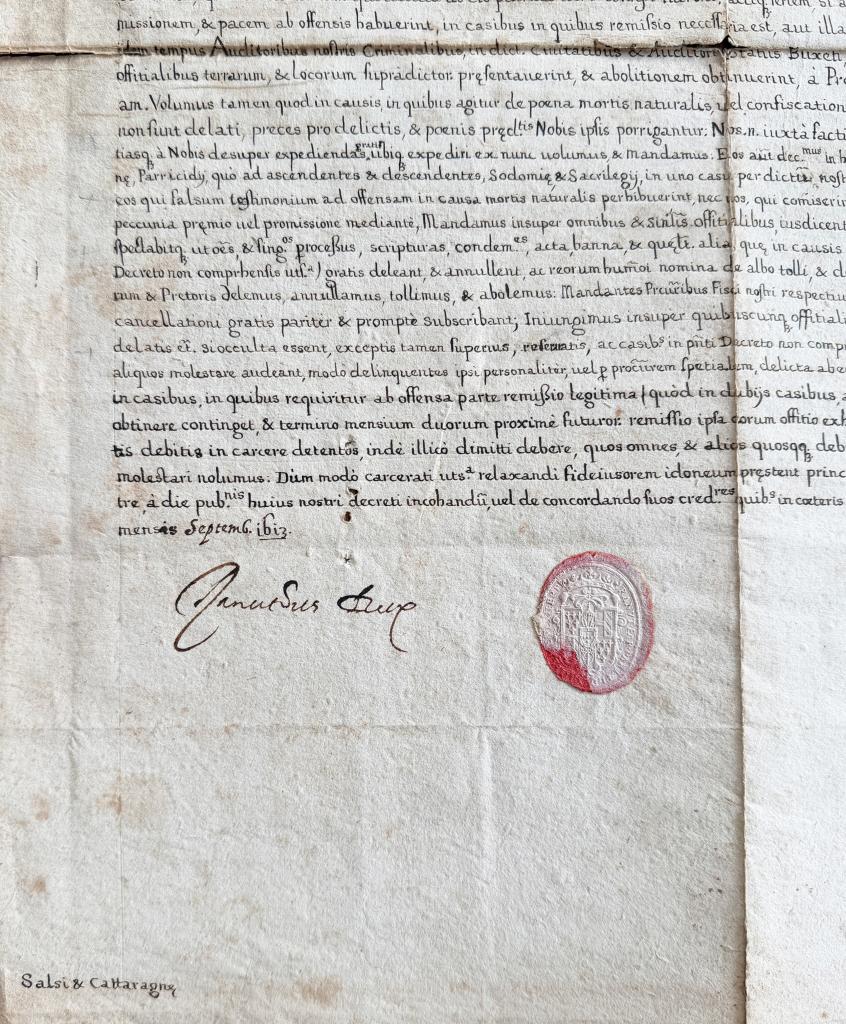 missionem, & pacem ab offensis habuerint, in casibus in quibus remissio necessaria est, aut illa
idem tempus Auditoribus nostris Criminalibus, in dict. Civitatibus & Auditori Status Buxeti
offitialibus terrarum, & locorum supradictor. pręsentauerint, & abolitionem obtinuerint, à Pr
am. Volumus tamen quod in causis, in quibus agitur de poena mortis naturalis, uel confiscation
non sunt delati, preces pro delictis, & poenis pręd.tis Nobis ipsis porrigantur: Nos.n. iuxtà facti
tiasq à Nobis desuper expediendas, gratis ubiq expediri ex nunc uolumus, & mandamus. Eos aūt dec.mus in h
nę, Parricidÿ, quò ad ascendentes & descendentes, Sodomię, & Sacrilegij, in uno casu per dictū nost
eos qui falsum testimonium ad offensam in causa mortis naturalis perhibuerint, nec nos, qui comiserin
peccunia pręmio uel promissione mediante, Mandamus insuper omnibus & sinłis offitialibus iusdicent
spectabitq, ut oēs, & sing.os processus, scripturas, condem.es, acta, banna, & quęlt. alia, quę in causis
Decreto non comprhensis utsª) gratis deleant, & annullent, ac reorum humōi nomina de albo tolli, & d
rum & Pretoris delemus, annullamus, tollimus, & abolemus: Mandantes Prcūribus Fisci nostri respectiu
cancellationi gratis pariter & promptè subscribant; Iniungimus insuper quibuscunq offitiali
delatis et. si occulta essent, exceptis tamen superius, reseruatis, ac casib.s in pn̄ti Decreto non comp
aliquos molestare audeant, modò delinquentes ipsi personalitèr, uel p procūrem spetialem, delicta abe
in casibus, in quibus requiritur ab offensa parte remissio legitima / quòd in dubijs casibus, a
obtinere continget, & termino mensium duorum proximè futuror. remissio ipsa eorum offitio exh
tis debitis in carcere detentos, indè illicò dimitti debere, quos omnes, & alios quosqq deb
molestari nolumus: Dūm modò carcerati utsª relaxandi fideiusorem idoneum pręstent princ
tre, à die pub.nis huius nostri decreti incohandū, uel de concordando suos cred.res quib.s in cœteris
mensis Septemb. 1613.
Ranutius Dux
Salsi & Cattaragnę